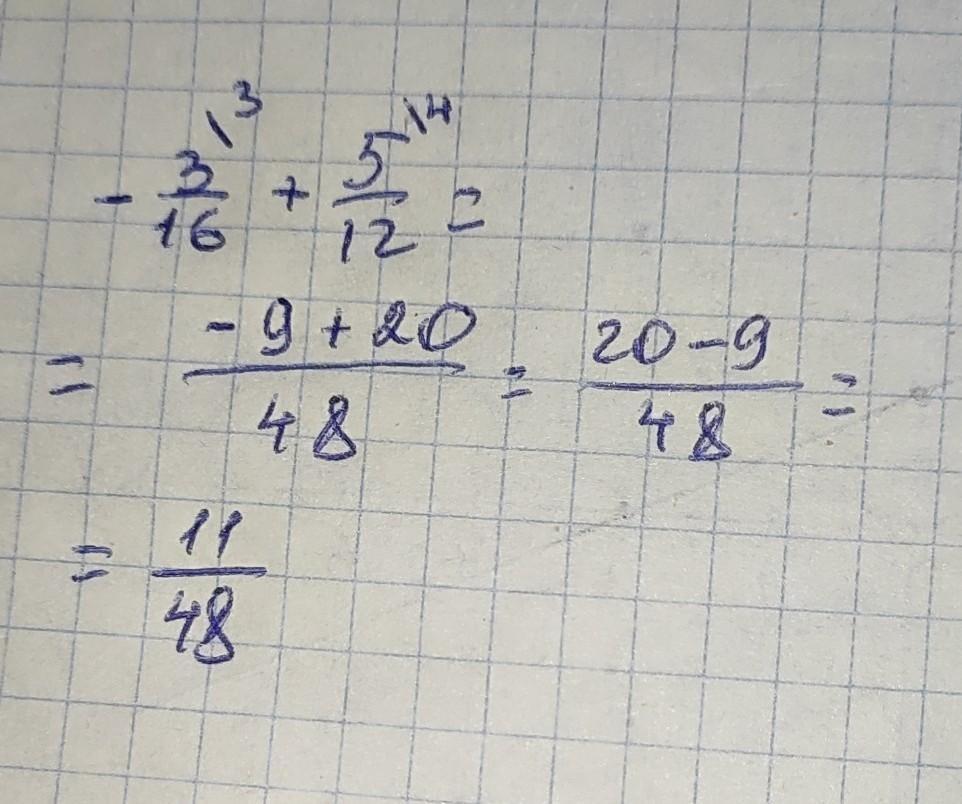 - 3/16 \3 + 5/12 \4 =
= (-9+20)/48 = (20-9)/48 =
= 11/48